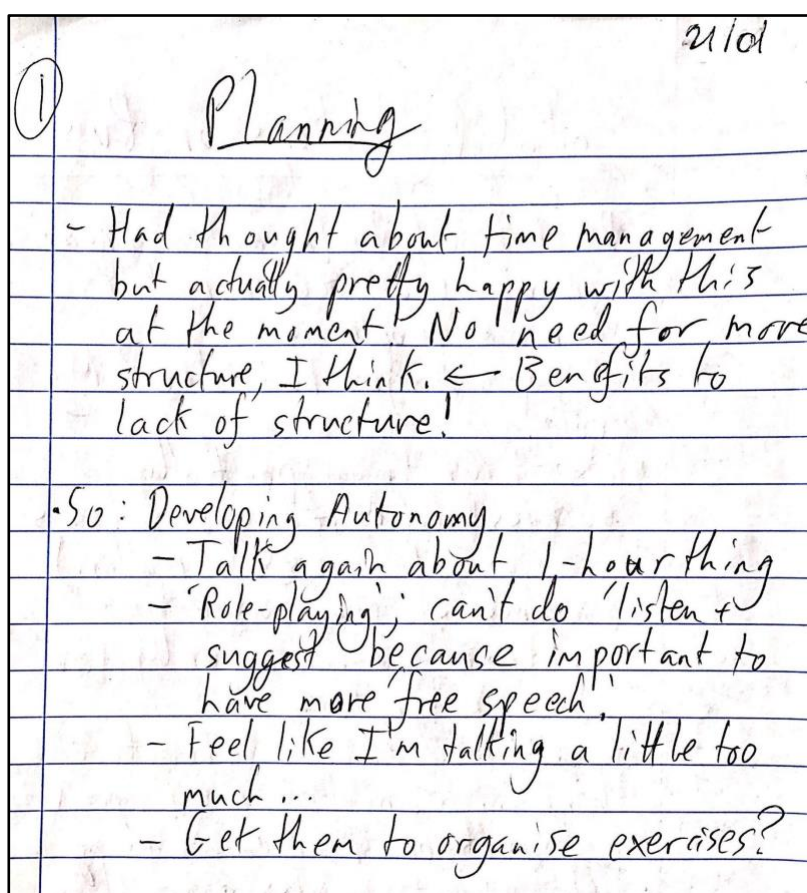 21/01
1 Planning
- Had thought about time management
but actually pretty happy with this
at the moment. No need for more
structure, I think. ← Benefits to
lack of structure!
· So: Developing Autonomy
- Talk again about 1-hour thing
- 'Role-playing'; can't do 'listen +
suggest' because important to
have more 'free speech'.
- Feel like I'm talking a little too
much ...
- Get them to organise exercises?